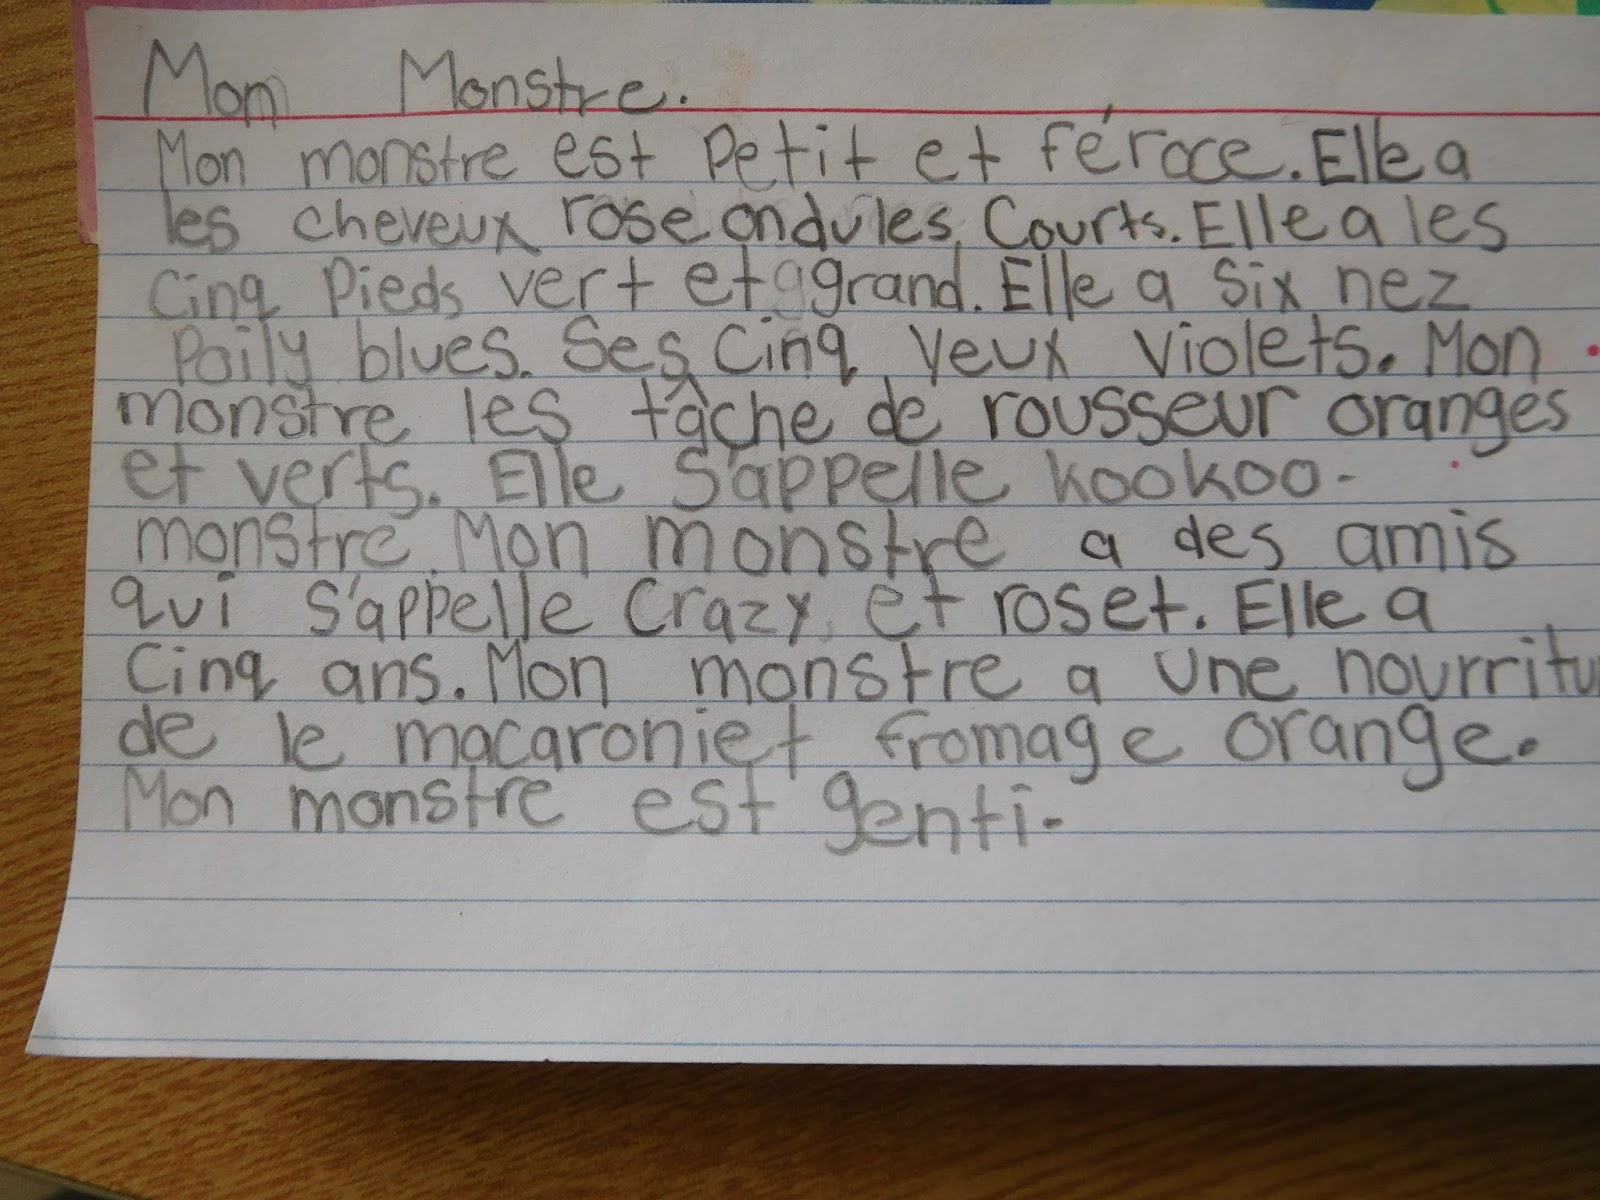 Mon Monstre.
Mon monstre est petit et féroce. Elle a
les cheveux rose ondules, Courts. Elle a les
Cinq Pieds vert et ggrand. Elle a Six nez
Poily blues. Ses Cinq yeux violets. Mon
monstre les tâche de rousseur oranges
et verts. Elle S'appelle kookoo-
monstre. Mon monstre a des amis
qui s'appelle Crazy, et roset. Elle a
Cinq ans. Mon monstre a une nourritu
de le macaroni et fromage orange.
Mon monstre est genti.